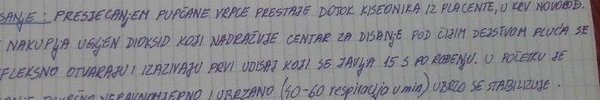 SANJE: PRESJECANJEM PUPČANE VRPCE PRESTAJE DOTOK KISEONIKA IZ PLACENTE, U KRV NOVOROĐ.
NAKUPLJA UGLJEN DIOKSID KOJI NADRAŽUJE CENTAR ZA DISANJE POD ČIJIM DEJSTVOM PLUĆA SE
FLEKSNO OTVARAJU I IZAZIVAJU PRVI UDISAJ KOJI SE JAVLJA 15 S PO ROĐENJU. U POČETKU JE
NERAVNOMJERNO I UBRZANO (40-60 respiracija u min) UBRZO SE STABILIZUJE.